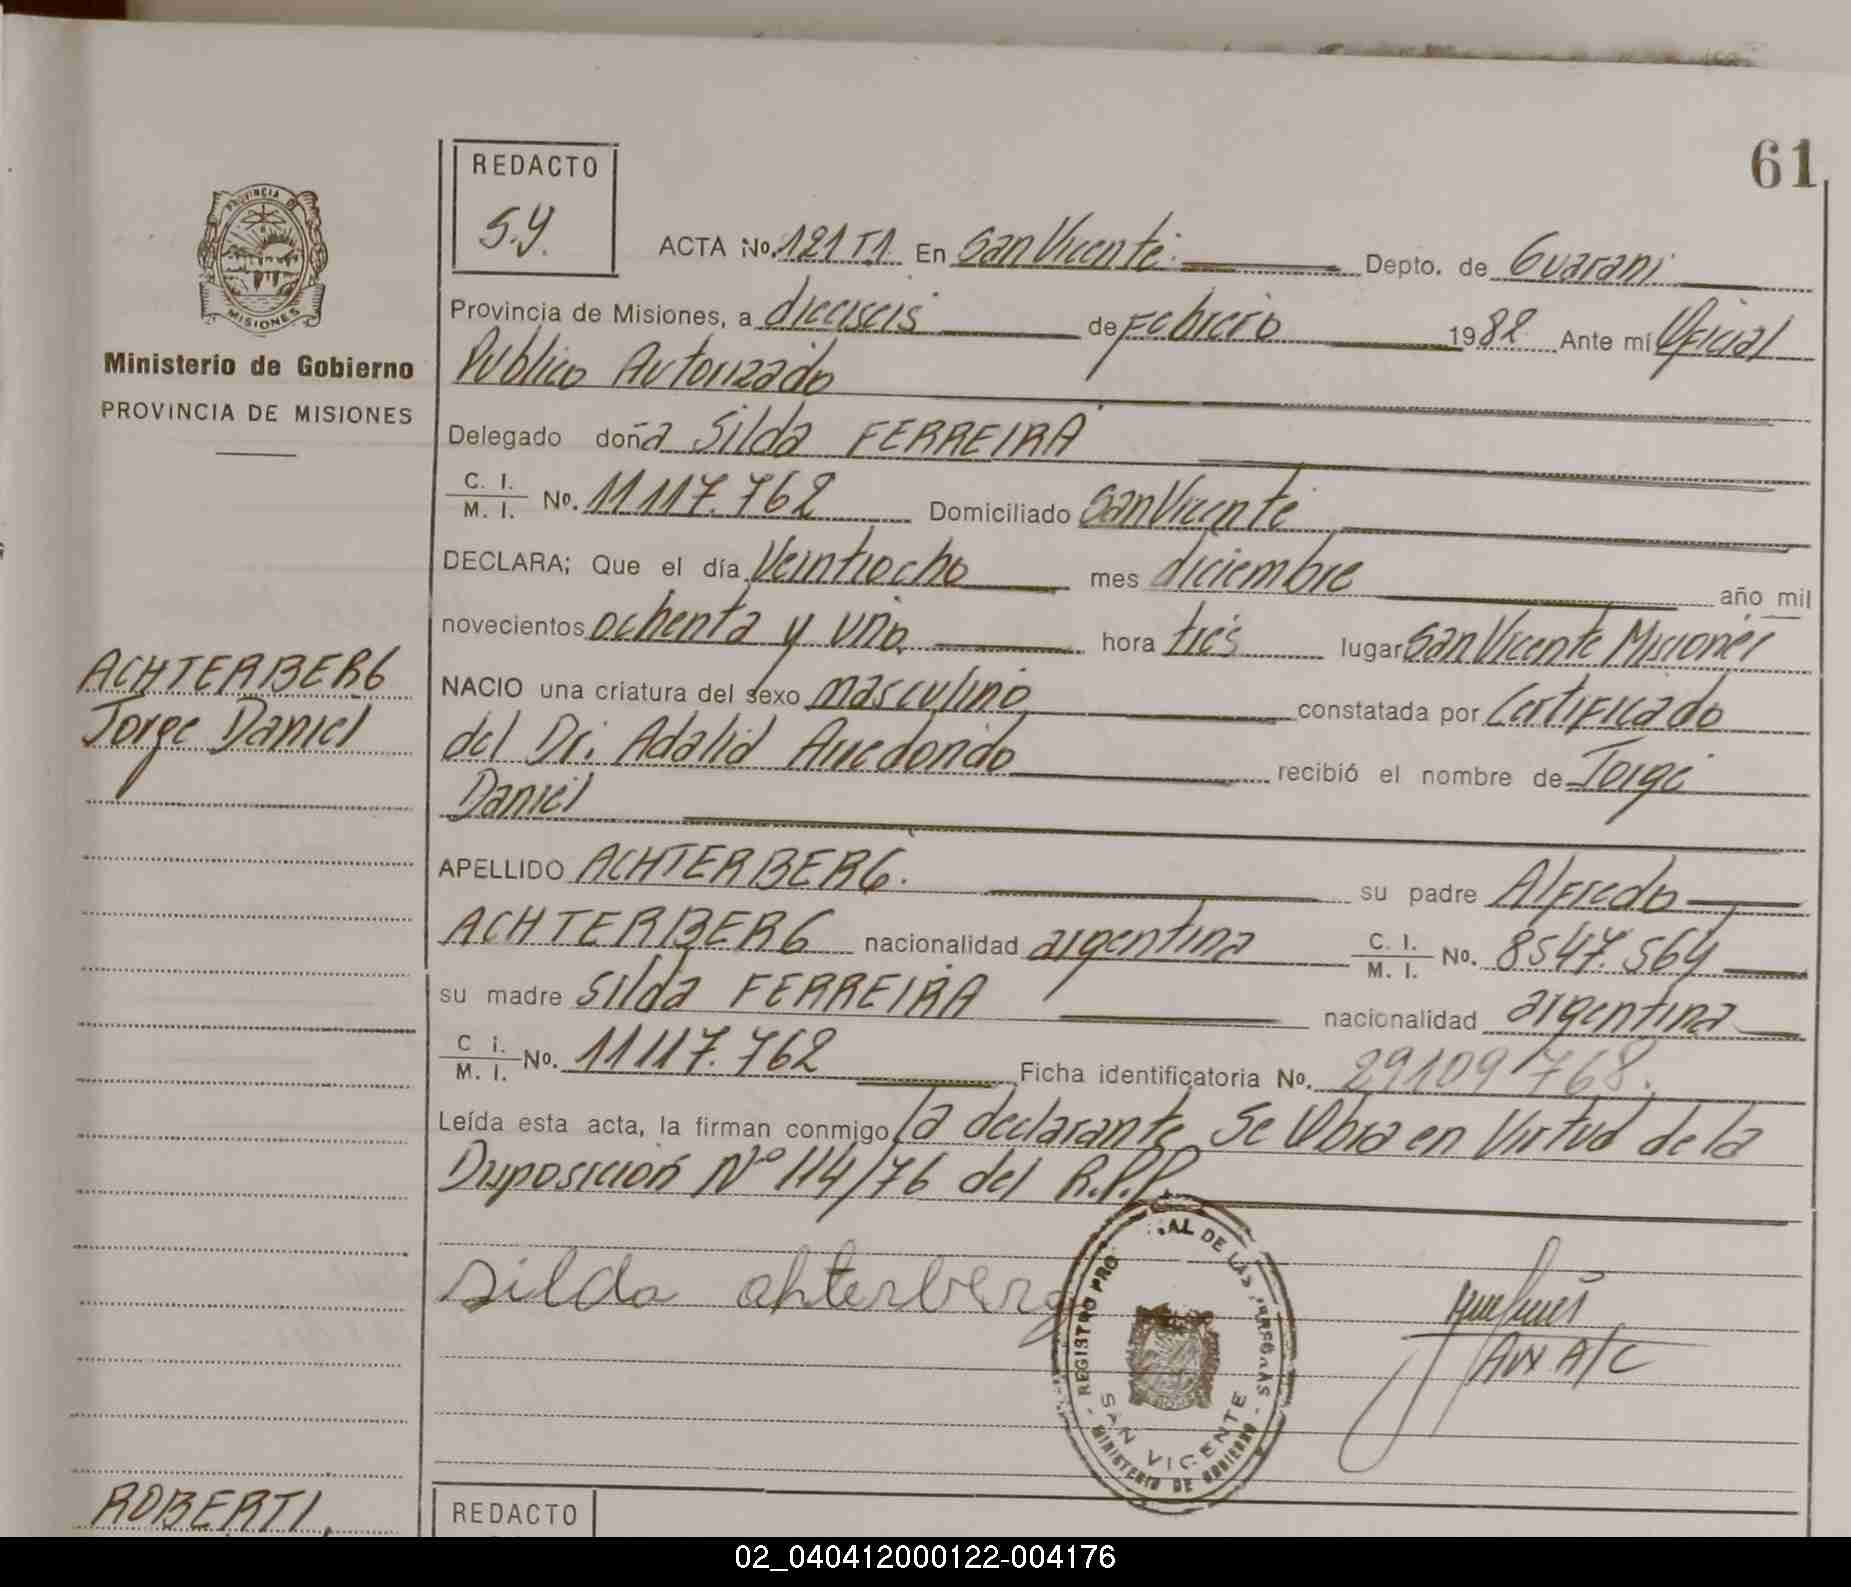 61
REDACTO
S.Y.
PROVINCIA DE
MISIONES
Ministerio de Gobierno
PROVINCIA DE MISIONES
ACTA No. 121 T1. En San Vicente. Depto. de Guarani
Provincia de Misiones, a dieciseis de Febrero 1982 Ante mi Oficial
Publico Autorizado
Delegado doña Silda FERREIRA
C. I. / M. I. No. 11117.762 Domiciliado San Vicente
DECLARA; Que el día Veintiocho mes diciembre año mil
novecientos ochenta y uno. hora tres lugar San Vicente Misiones
ACHTERBERG
Jorge Daniel
NACIO una criatura del sexo masculino constatada por Certificado
del Dr. Adalid Arredondo recibió el nombre de Jorge
Daniel
APELLIDO ACHTERBERG. su padre Alfredo
ACHTERBERG nacionalidad argentina C. I. / M. I. No. 8547.564
su madre Silda FERREIRA nacionalidad argentina
C i. / M. I. No. 11117.762 Ficha identificatoria No. 29109768.
Leída esta acta, la firman conmigo la declarante, Se Obra en Virtud de la
Disposición Nº 114/76 del R.P.P.
Silda ahterberg
REGISTRO PRO AL DE LAS PERSONAS
SAN VICENTE
- MINISTERIO DE GOBIERNO -
Aux A/C
ROBERTI,
REDACTO
02_040412000122-004176